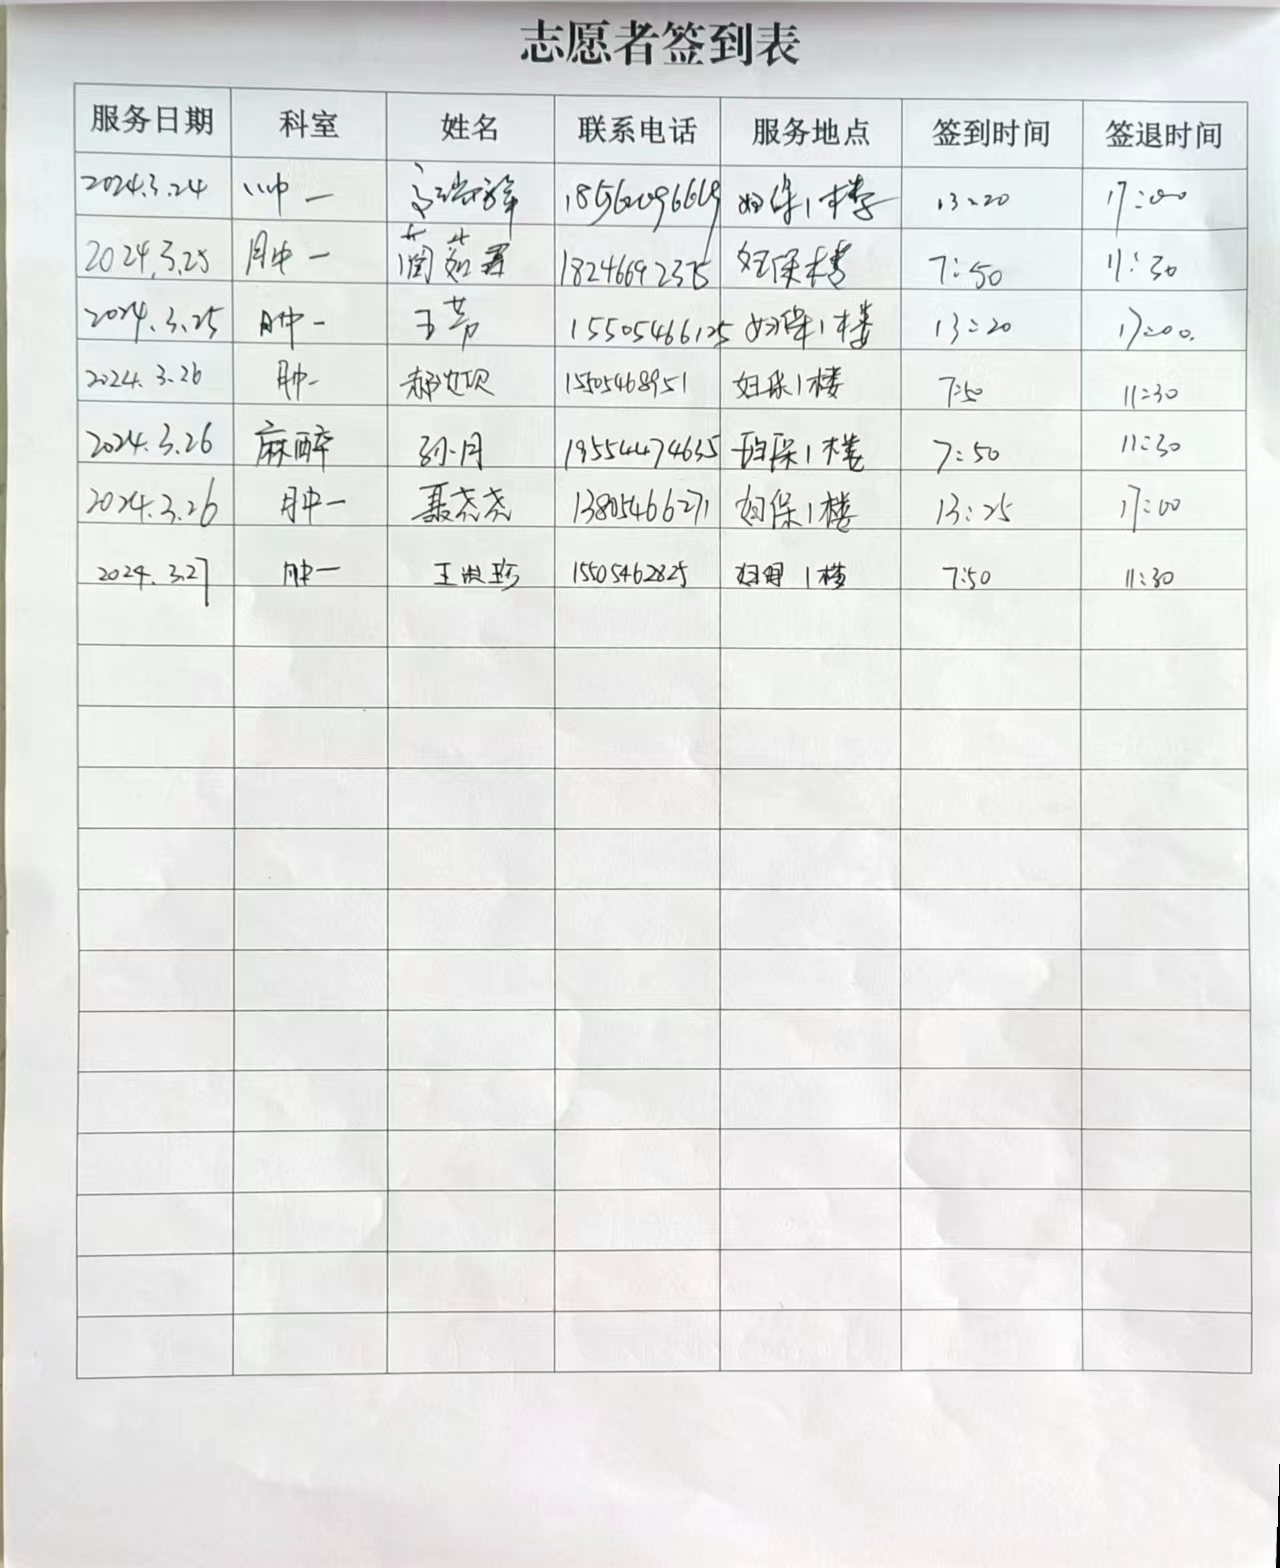 志愿者签到表
服务日期 科室 姓名 联系电话 服务地点 签到时间 签退时间
2024.3.24 肿一 18562096669 妇保1楼 13:20 17:00
2024.3.25 肿一 18246692375 妇保楼 7:50 11:30
2024.3.25 肿一 王芳 15505466125 妇保1楼 13:20 17:00.
2024.3.26 肿一 15505468951 妇保1楼 7:50 11:30
2024.3.26 麻醉 孙月 19554474635 妇保1楼 7:50 11:30
2024.3.26 肿一 聂尧尧 13805466271 妇保1楼 13:25 17:00
2024.3.27 肿一 王淑珍 15505462825 1楼 7:50 11:30